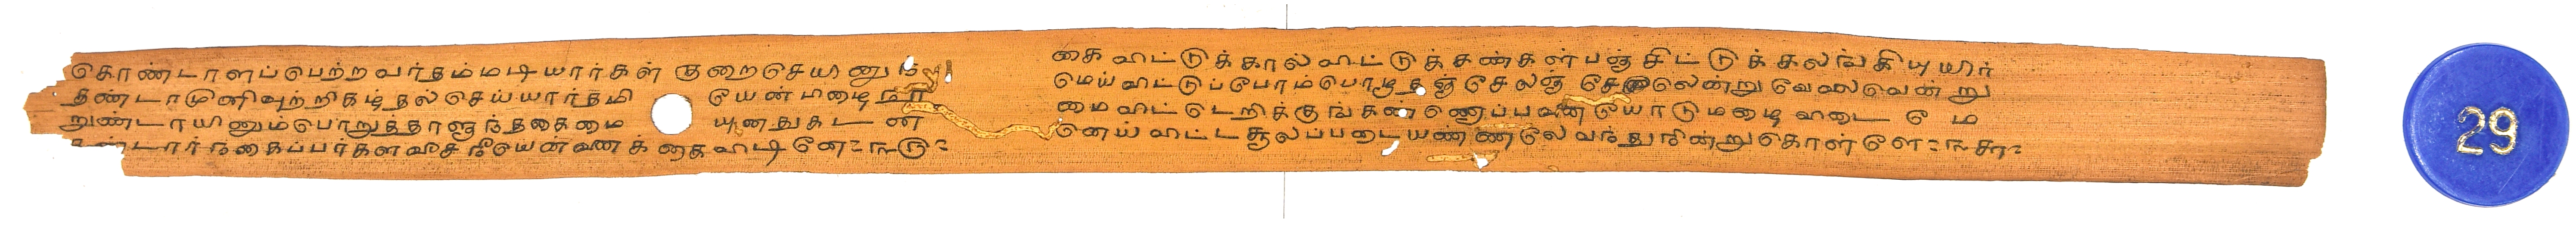 கொண்டாளப்பெற்றவர்தம்மடியார்கள் குறைசெயினும்
தண்டாமுனிவுற்றிகழ்தல்செய்யார்தமி யேன்பிழைநா
றுண்டாயினும்பொறுத்தாளுந்தகைமை யுனதுகடன்
ண்டார்நகைப்பர்கள நீயென்னைக் கைவிடினே
கைவிட்டுக்கால்விட்டுக்கண்கள்பஞ்சிட்டுக்கலங்கியுயிர்
மெய்விட்டுப்போம்பொழுதஞ்சேலஞ் சேலென்று வேலவென்று
மைவிட்டெறிக்குங்கண் யோடுமழைவிடை மே
னெய்விட்டசூலப்படையண்ணலேவந்துநின்றுகொள்ளே
29